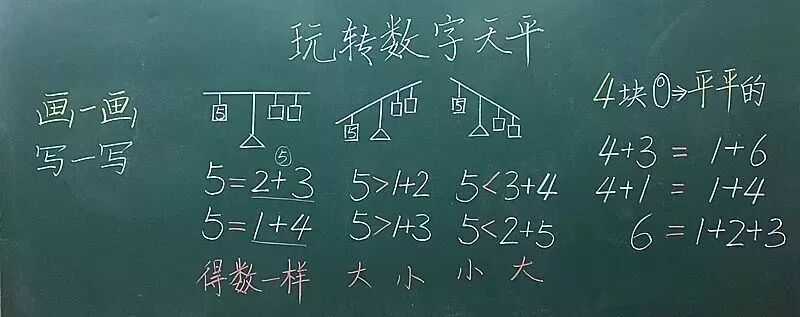 玩转数字天平
画一画
写一写
5
5=2+3
5=1+4
得数一样
5
5>1+2
5>1+3
大 小
5
5<3+4
5<2+5
小 大
4块①⇒平平的
4+3=1+6
4+1=1+4
6=1+2+3